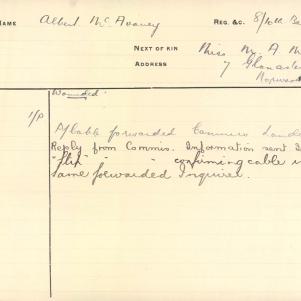 NAME Albert McAvaney REG. &C. 8/10th Ba
NEXT OF KIN Miss M. A. M
ADDRESS 7
Norwood
Wounded.
Cable forwarded Commrs Lond
Reply from Commis. Information sent
" " " confirming cable
same forwarded Inquirer.